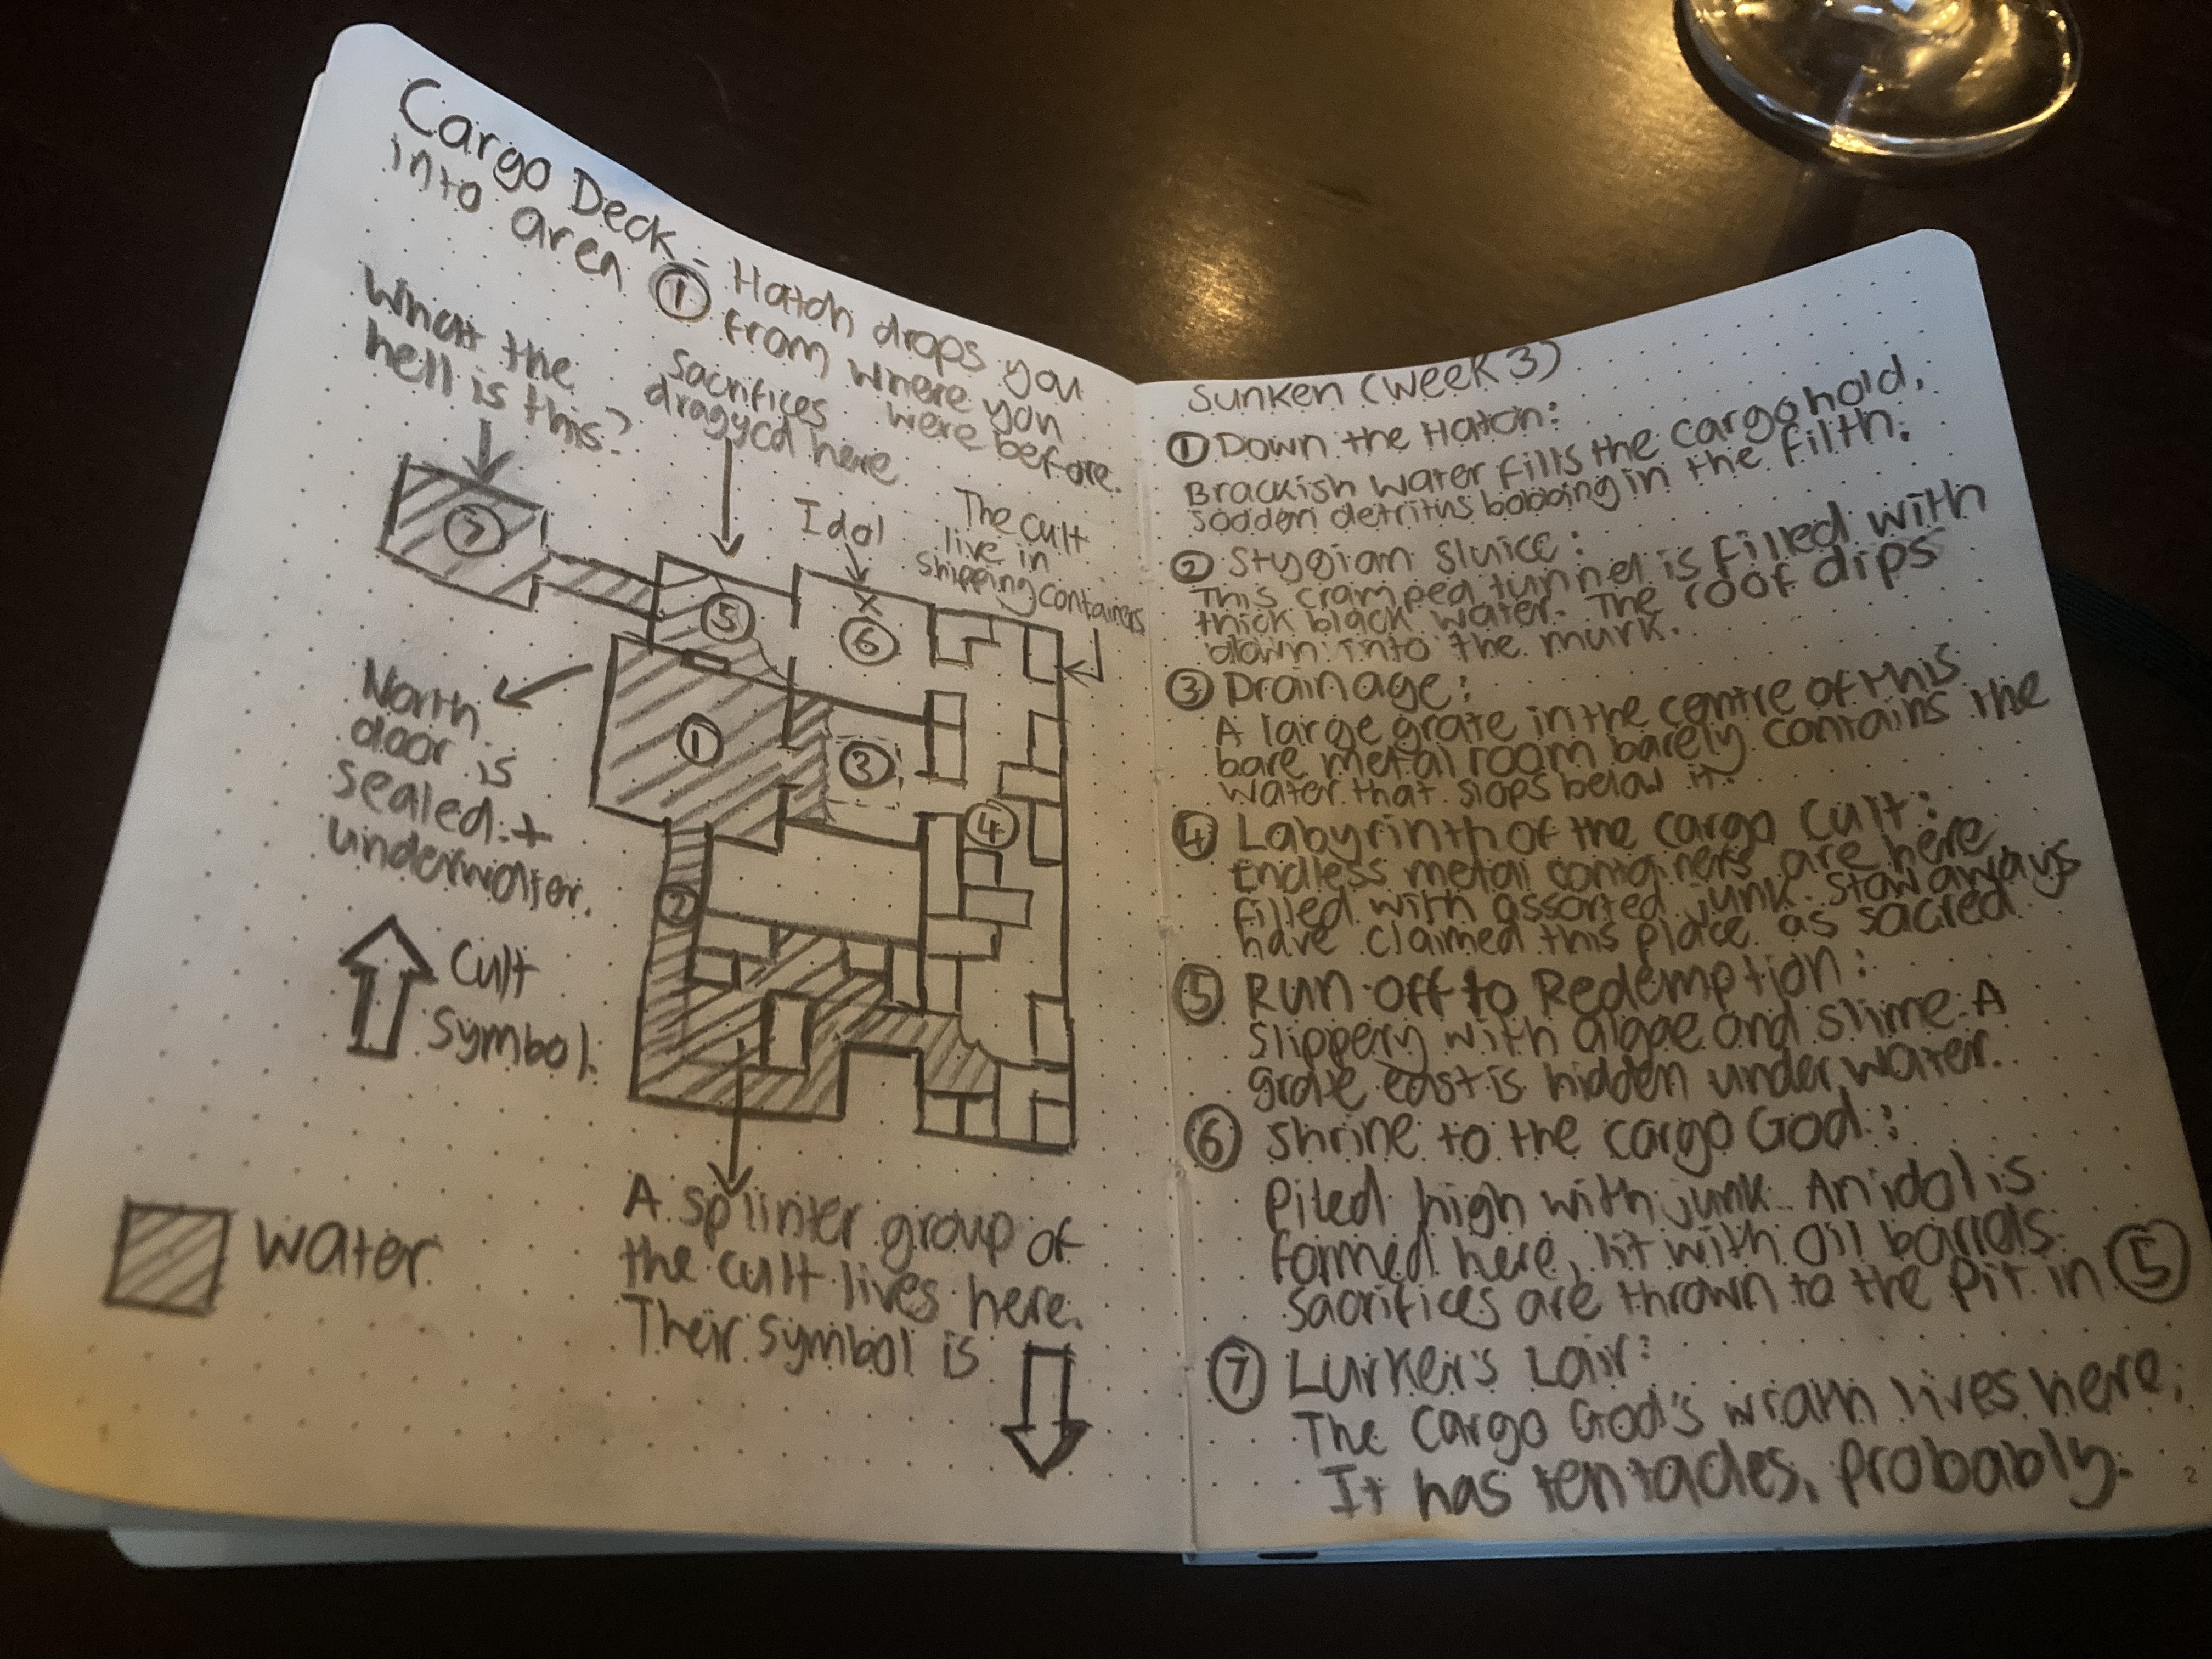 Cargo Deck - Hatch drops you
into area ① from where you
were before.
What the
hell is this?
Sacrifices
dragged here
Idol
The cult
live in
shipping containers
⑦
⑤
X
⑥
North
door is
sealed +
underwater.
①
③
④
②
Cult
Symbol.
Water
A splinter group of
the cult lives here.
Their symbol is
Sunken (week 3)
① Down the Hatch:
Brackish water fills the cargo hold,
sodden detritus bobbing in the filth.
② Stygian Sluice:
This cramped tunnel is filled with
thick black water. The roof dips
down into the murk.
③ Drainage:
A large grate in the centre of this
bare metal room barely contains the
water that slops below it.
④ Labyrinth of the Cargo Cult:
Endless metal containers are here
filled with assorted junk. Stowaways
have claimed this place as sacred
⑤ Run off to Redemption:
Slippery with algae and slime. A
grate east is hidden under water.
⑥ Shrine to the Cargo God:
Piled high with junk. An idol is
formed here, lit with oil barrels.
Sacrifices are thrown to the pit in ⑤
⑦ Lurker's Lair:
The Cargo God's wrath lives here;
It has tentacles, probably.
2